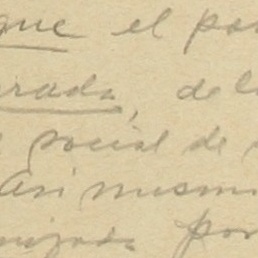 que el po
rada, de l
social de
Asi mismo
nizada por